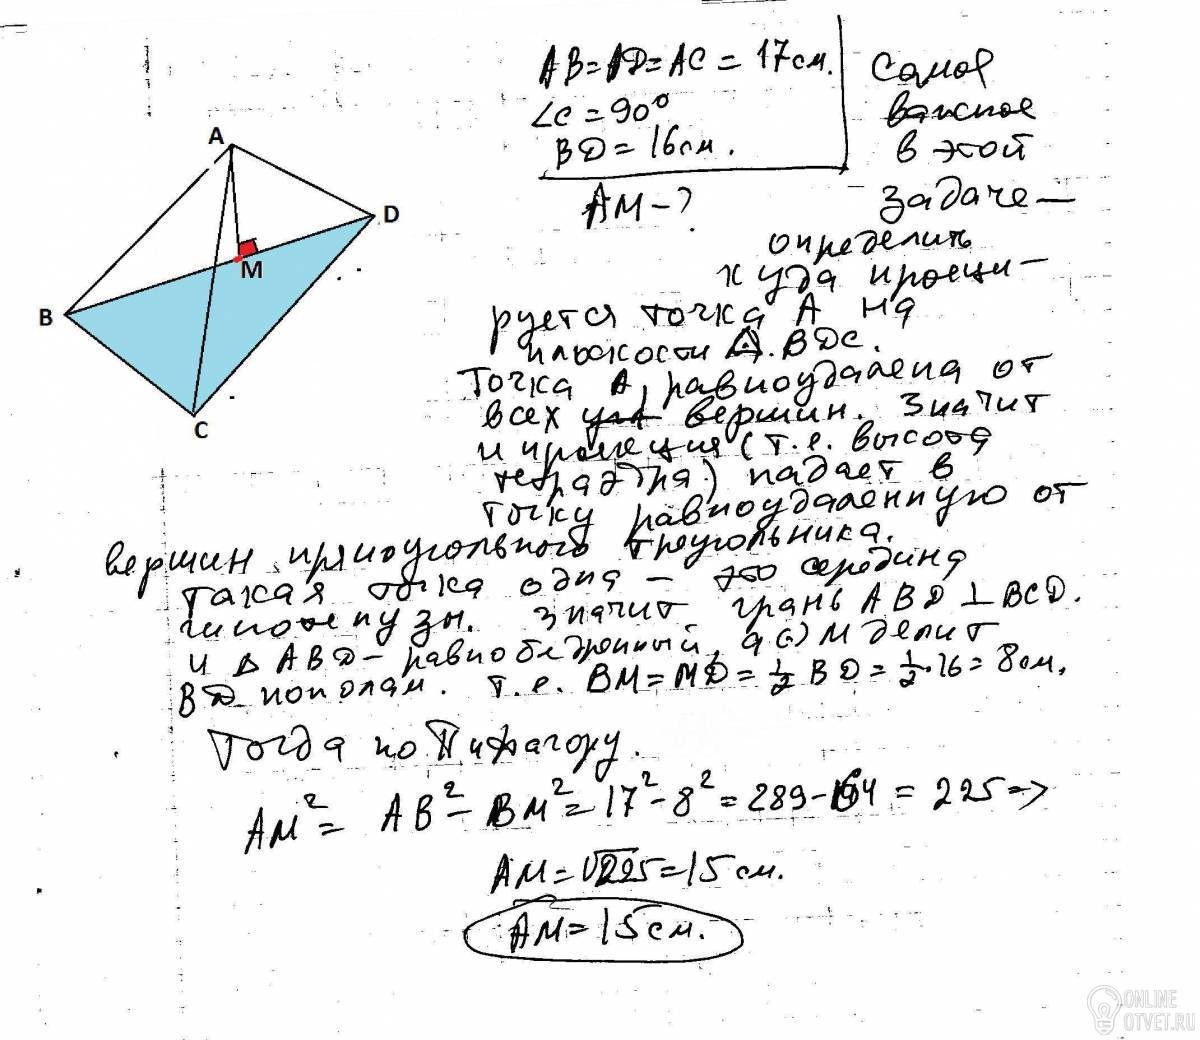 A
D
M
B
C
AB=AD=AC=17см.
∠C=90°
BD=16см.
AM-?
Самое
важное
в этой
задаче —
определить
куда проеци-
руется точка A на
плоскости △.BDC.
Точка A, равноудалена от
всех вершин. Значит
и проекция (т.е. высота
тетраэдра) падает в
точку равноудаленную от
вершин прямоугольного треугольника.
Такая точка одна — это середина
гипотенузы. Значит грань ABD ⊥ BCD.
и △ABD - равнобедренный, а (·) M делит
BD пополам. т.е. BM=MD=½BD=½·16=8см.
Тогда по Пифагору.
AM²= AB²-BM²=17²-8²=289-64=225=>
AM=√225=15см.
AM=15см.
ONLINE
OTVET.RU